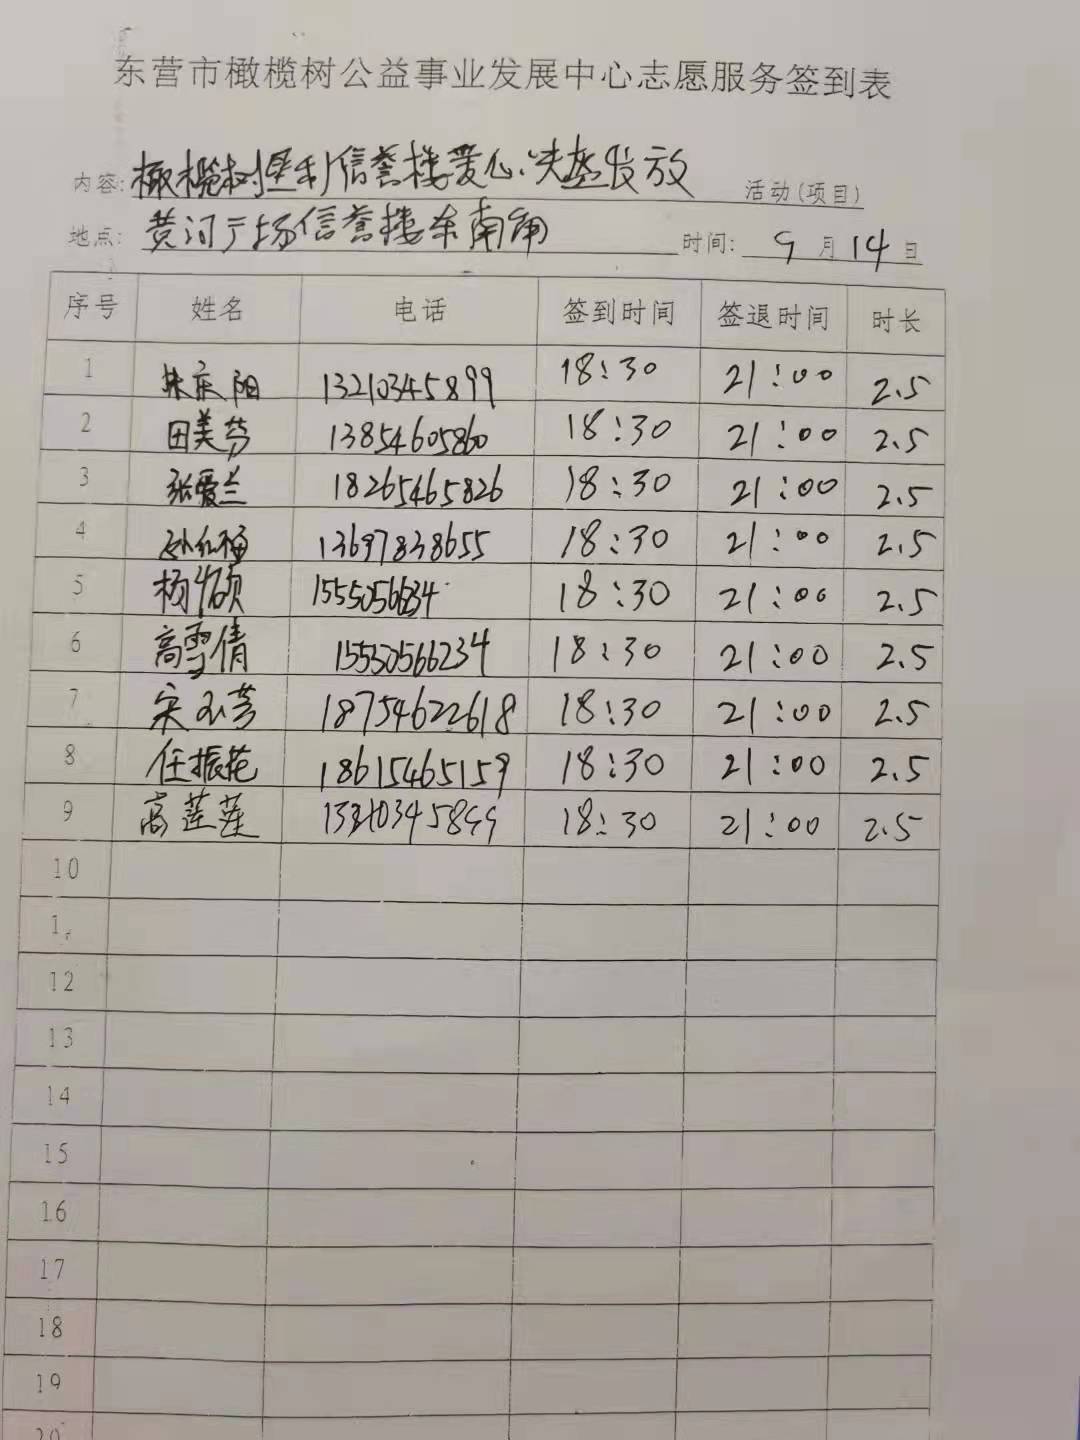 东营市橄榄树公益事业发展中心志愿服务签到表
内容: 橄榄树堡利信誉楼爱心头盔发放 活动(项目)
地点: 黄河广场信誉楼东南角 时间: 9月14日
序号 姓名 电话 签到时间 签退时间 时长
1 庆阳 13210345899 18:30 21:00 2.5
2 田美芬 13854605860 18:30 21:00 2.5
3 张爱兰 18265465826 18:30 21:00 2.5
4 13697838655 18:30 21:00 2.5
5 杨硕 18:30 21:00 2.5
6 高雪倩 15550566234 18:30 21:00 2.5
7 宋玉芳 18754622618 18:30 21:00 2.5
8 任振花 18615465159 18:30 21:00 2.5
9 高莲莲 13210345899 18:30 21:00 2.5
10
1
12
13
14
15
16
17
18
19
20